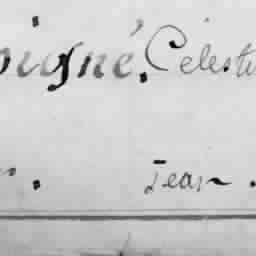 oigné. Celesti
Jean